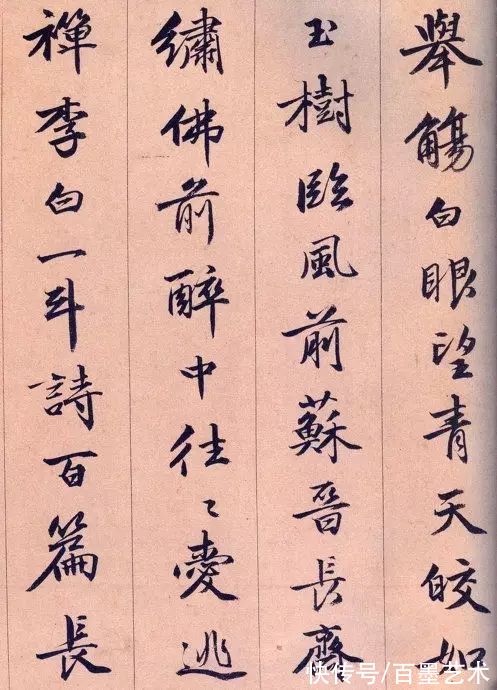 舉觴白眼望青天皎如
玉樹臨風前蘇晉長齋
繡佛前醉中往〻愛逃
禪李白一斗詩百篇長
快传号/百墨艺术